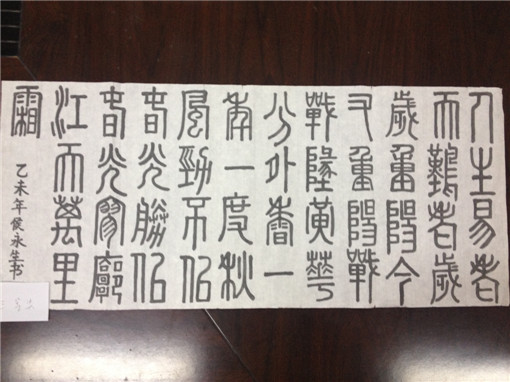 人生易老
天難老歲
歲重陽今
又重陽戰
戰墬黃華
分外香一
年一度秋
風勁不佀
春光勝佀
春光寥廓
江天萬里
霜
乙未年侯永生书